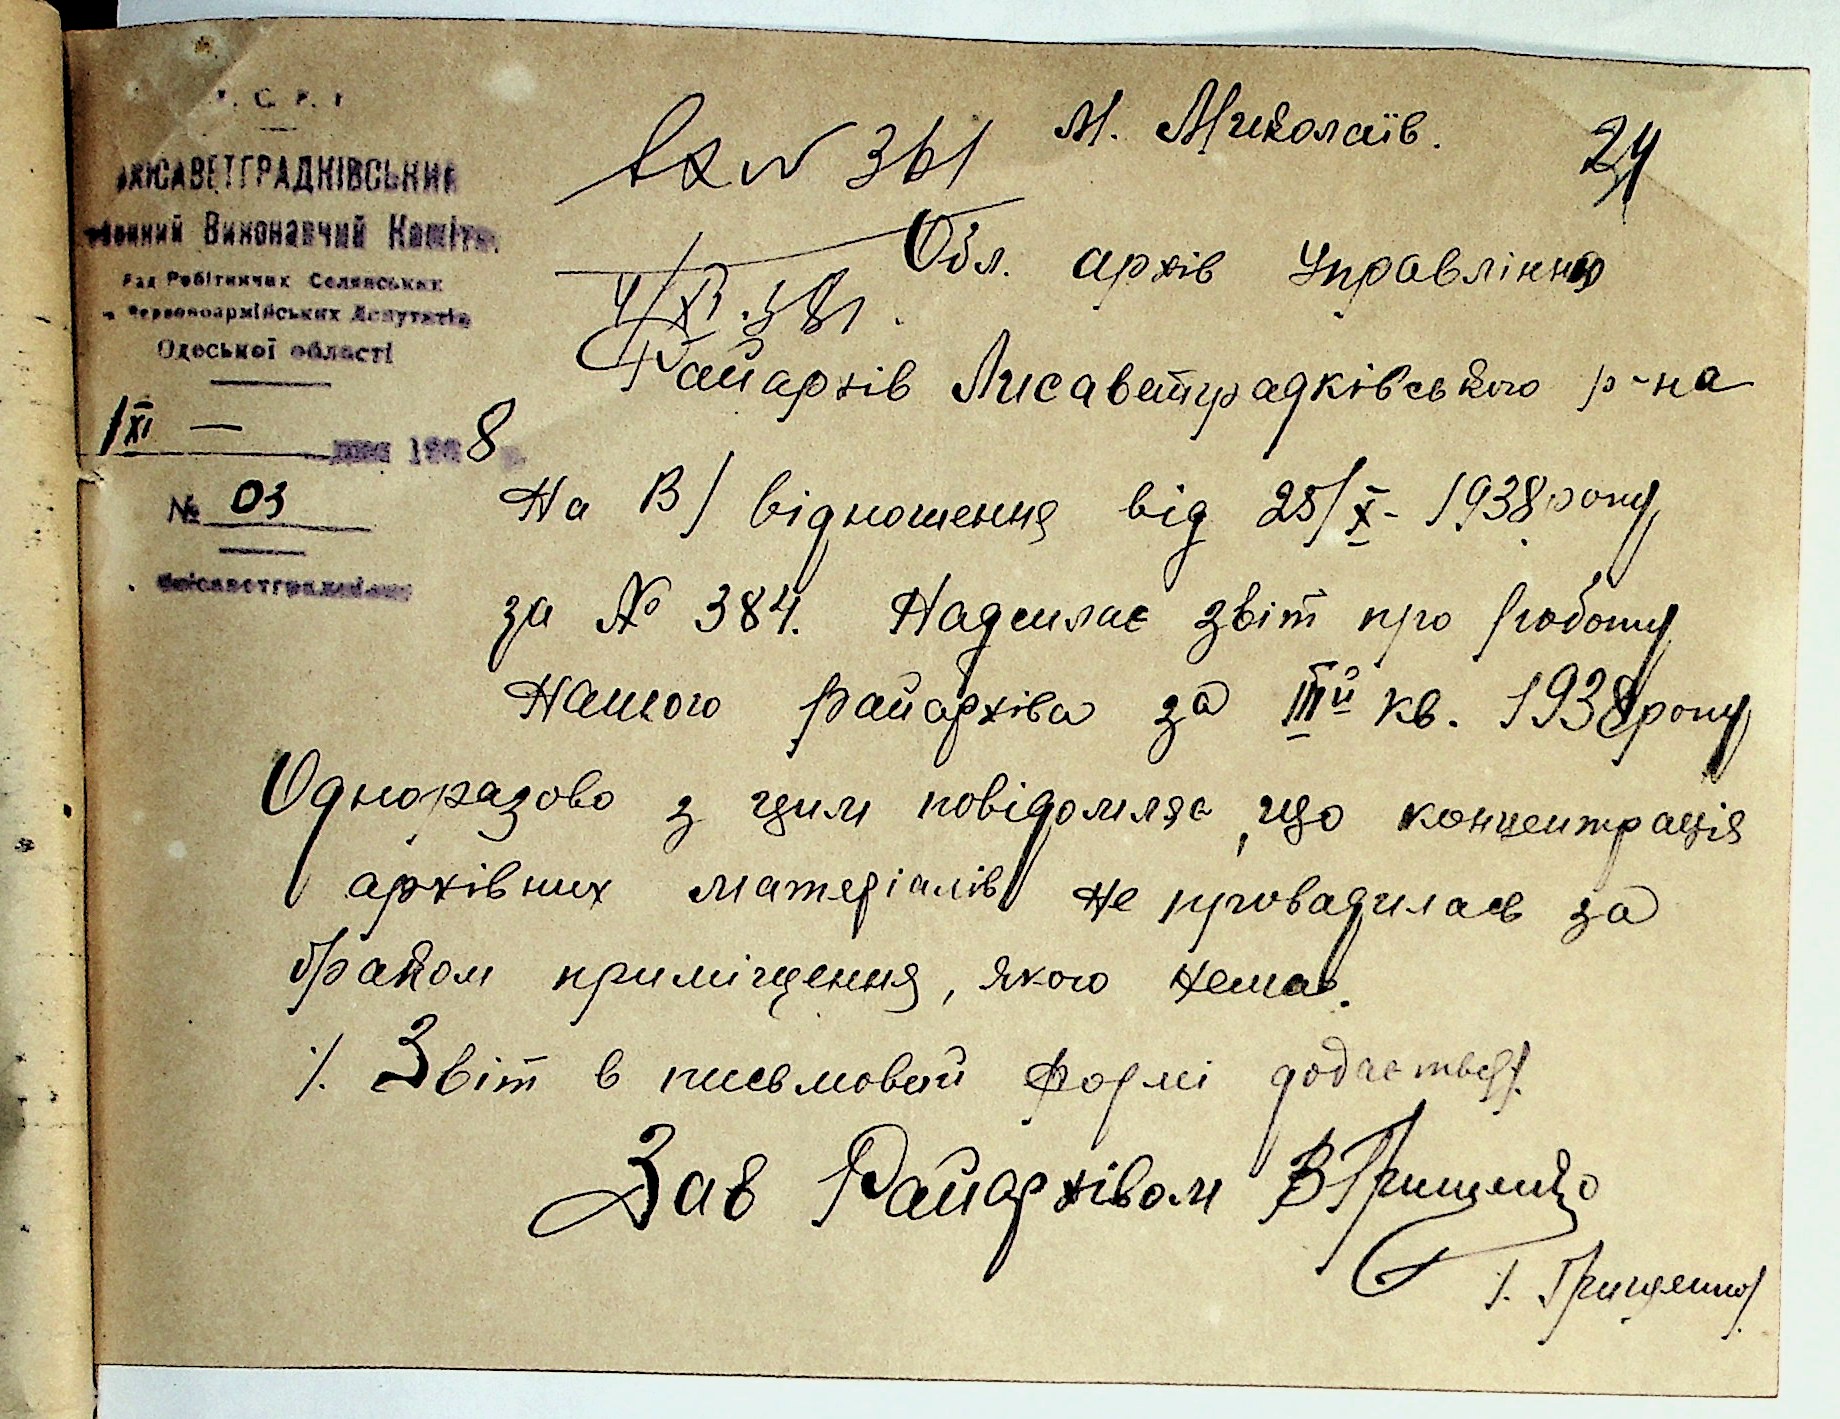 У. С. Р. Р
ЛИСАВЕТГРАДКІВСЬКИЙ
Районний Виконавчий Комітет
Рад Робітничих Селянських
и Червоноармійських Депутатів
Одеської області
1/XI — дня 1938 р.
№ 03
вх № 361
4/XI.38
м. Миколаїв.
24
Обл. архів Управління
Райархів Лисаветградківського р-на
На В/ відношення від 25/X- 1938 року
за № 384. Надсилає звіт про роботу
нашого райархіва за III й кв. 1938 року
Одноразово з цим повідомляє, що концентрація
архівних матеріалів не провадилась за
браком приміщення, якого немає.
/. Звіт в письмовій формі додається/.
Зав Райархівом ВГрищенко
/. Грищенко/